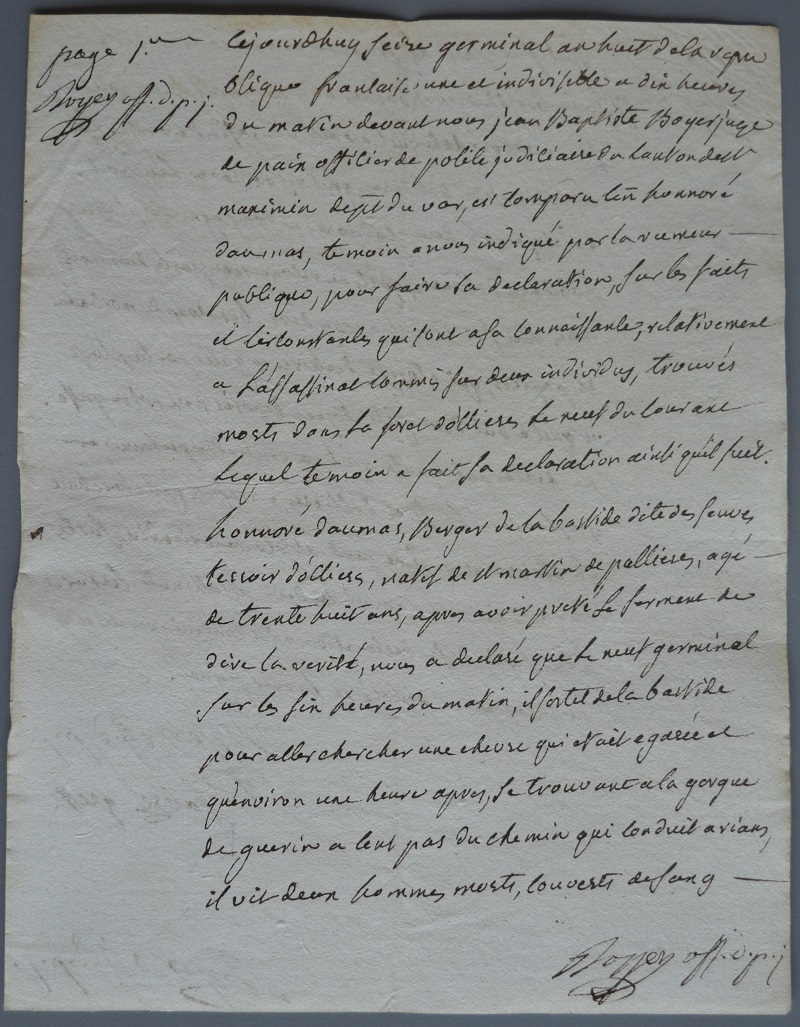 page 1.re
Boyer off. d. p. j.
Cejourdhuy seize germinal an huit de la repu
blique francaise une et indivisible a dix heures
du matin devant nous jean Baptiste Boyer juge
de paix officier de police judiciaire du canton de st
maximin dept du var, est comparu len honnoré
daumas, temoin a nous indiqué par la rumeur
publique, pour faire sa declaration, sur les faits
et circonstances qui sont a sa connaissance, relativement
a L'assassinat commis sur deux individus, trouvés
morts dans la foret d'ollieres Le neuf du courant
Lequel temoin a fait sa declaration ainsi qu'il suit.
honnoré daumas, Berger de la bastide dite des seuves
terroir d'ollieres, natif de st martin de pallieres, agé
de trente huit ans, apres avoir preté Le serment de
dire la verité, nous a declaré que Le neuf germinal
sur les six heures du matin, il sortit de la bastide
pour aller chercher une chevre qui etait egarée et
qu'environ une heure apres, se trouvant a la gorgue
de guerin a cent pas du chemin qui conduit a rians,
il vit deux hommes morts, couverts de sang
Boyer off. d. p. j